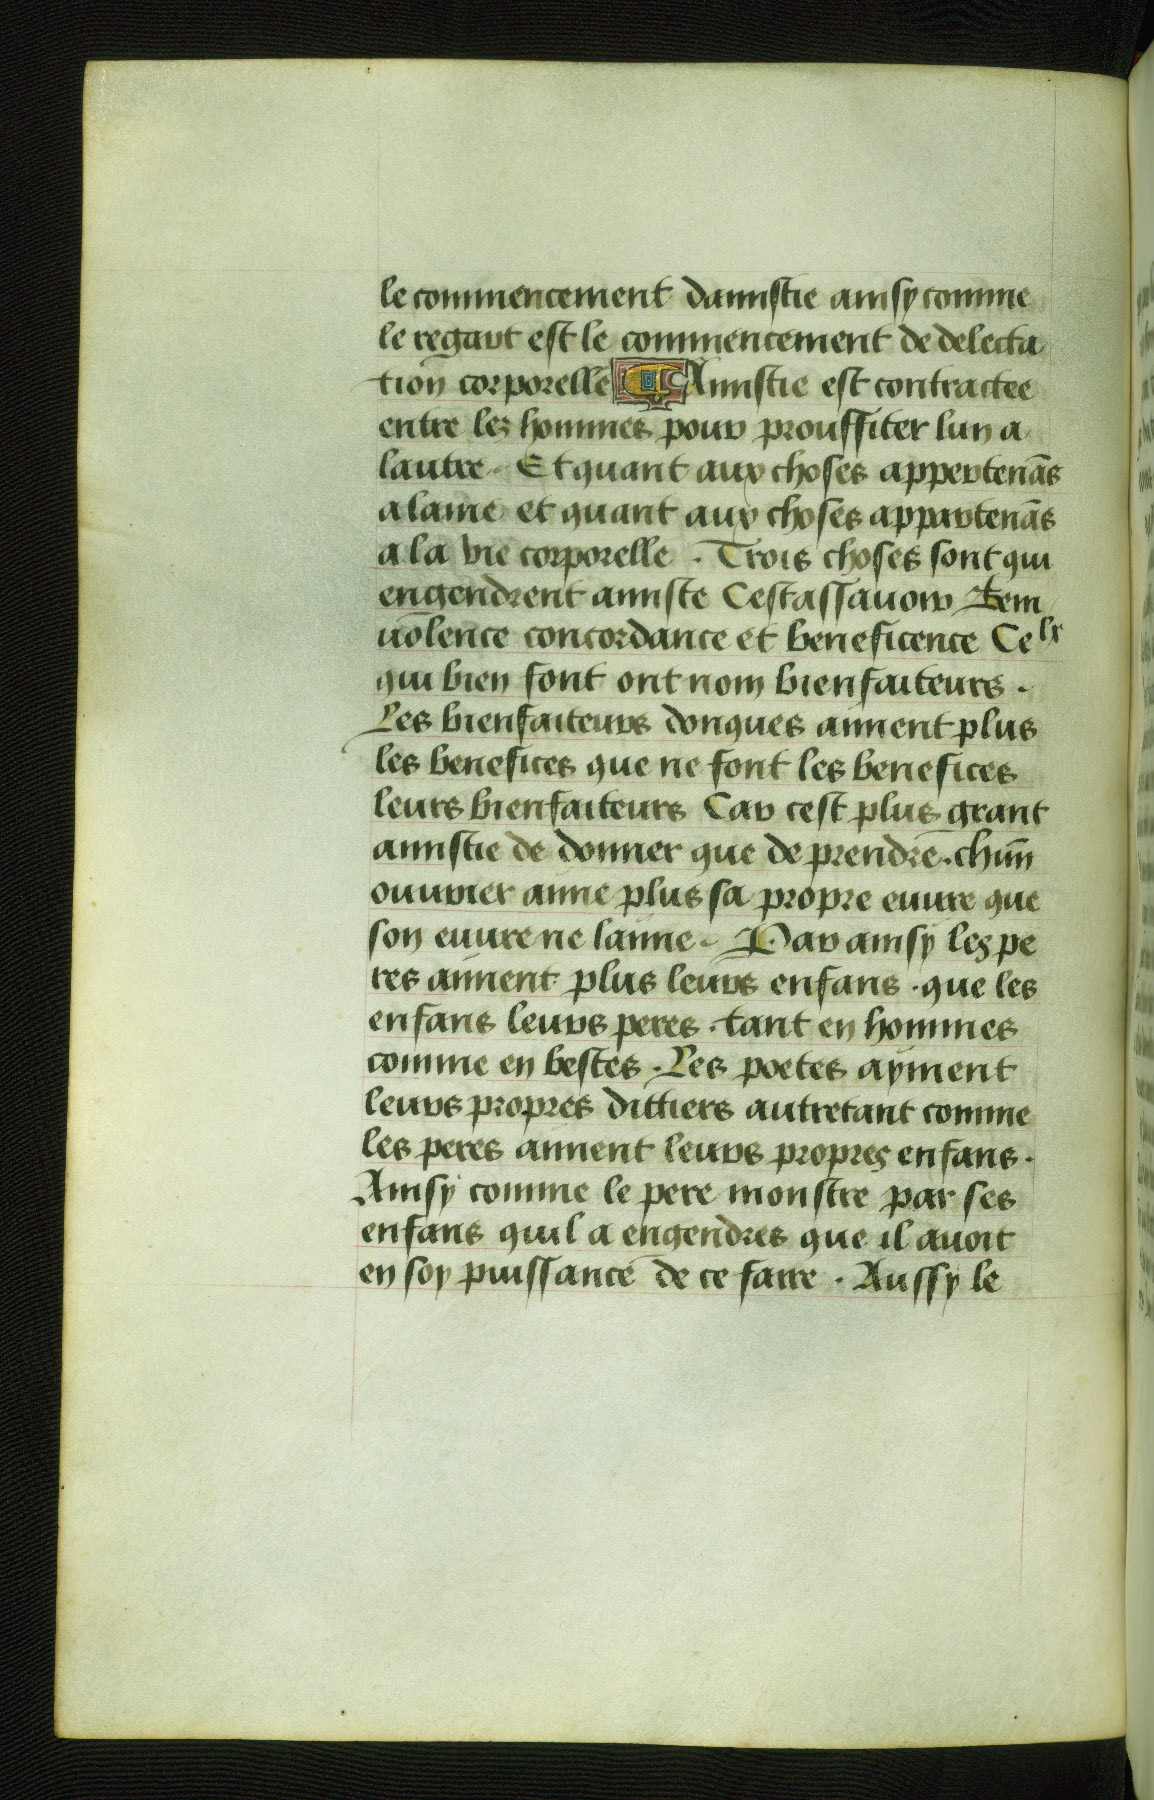 le commencement damistie ainsy comme
le regart est le commencement de delecta
tion corporelle Amistie est contractee
entre les hommes pour prouffiter lun a
lautre. Et quant aux choses appertenās
a lame et quant aux choses appartenās
a la vie corporelle. Trois choses sont qui
engendrent amiste Cestassauoir Beni
uolence concordance et beneficence Celx
qui bien font ont nom bienfaiteurs.
Les bienfaiteurs donques aiment plus
les benefices que ne font les benefices
leurs bienfaiteurs Car cest plus grant
amistie de donner que de prendre. chūn
ouurier aime plus sa propre euure que
son euure ne laime. Par ainsy les pe
res aiment plus leurs enfans. que les
enfans leurs peres. tant en hommes
comme en bestes. Les poetes ayment
leurs propres dittiers autretant comme
les peres aiment leurs propres enfans.
Ainsy comme le pere monstre par ses
enfans quil a engendres que il auoit
en soy puissance de ce faire. Aussy le